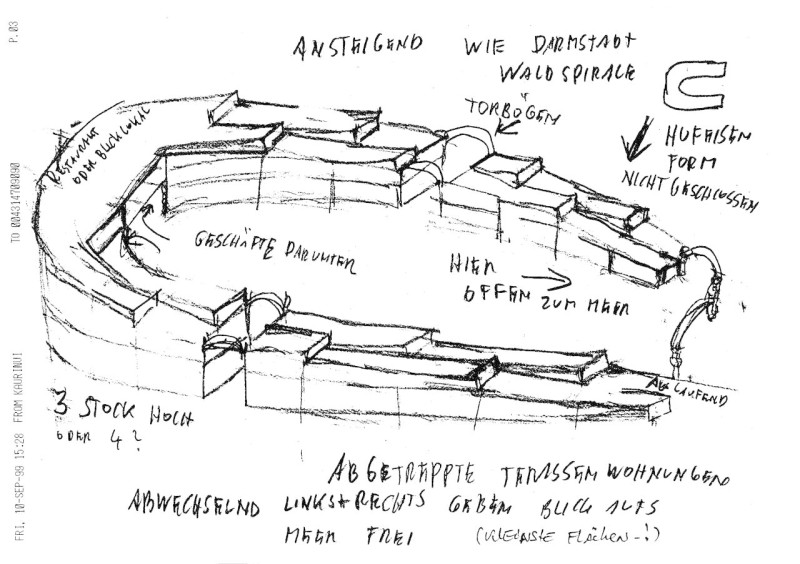 P.03
TO 004314709090
FRI, 10-SEP-99 15:28 FROM KAURINUI
ANSTEIGEND WIE DARMSTADT
WALDSPIRALE
TORBÖGEN
HUFEISEN
FORM
NICHT GESCHLOSSEN
RESTAURANT
ODER BLICKLOKAL
GESCHÄFTE DARUNTER
HIER
OFFEN ZUM MEER
ABLAUFEND
3 STOCK HOCH
ODER 4?
ABGETREPPTE TERASSENWOHNUNGEN
ABWECHSELND LINKS+RECHTS GEBEN BLICK AUFS
MEER FREI (KLEINSTE FLÄCHEN-!)